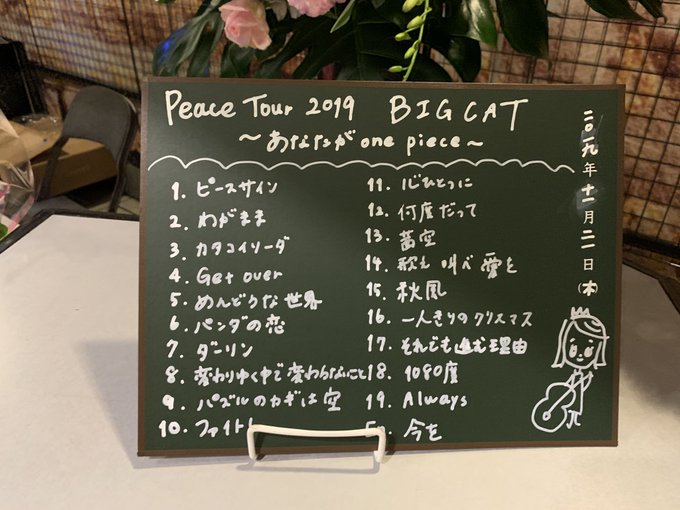 Peace Tour 2019 BIG CAT
〜あなたが one piece〜
二〇一九年十一月二一日(木)
1. ピースサイン
2. わがまま
3. カタコイリーダ
4. Get over
5. めんどうな世界
6. パンダの恋
7. ダーリン
8. 変わりゆく中で変わらないこと
9. パズルのカギは空
10. ファイト
11. 心ひとつに
12. 何度だって
13. 茜空
14. 歌え 叫べ 愛を
15. 秋風
16. 一人きりのクリスマス
17. それでも進む理由
18. 1080度
19. Always
今を